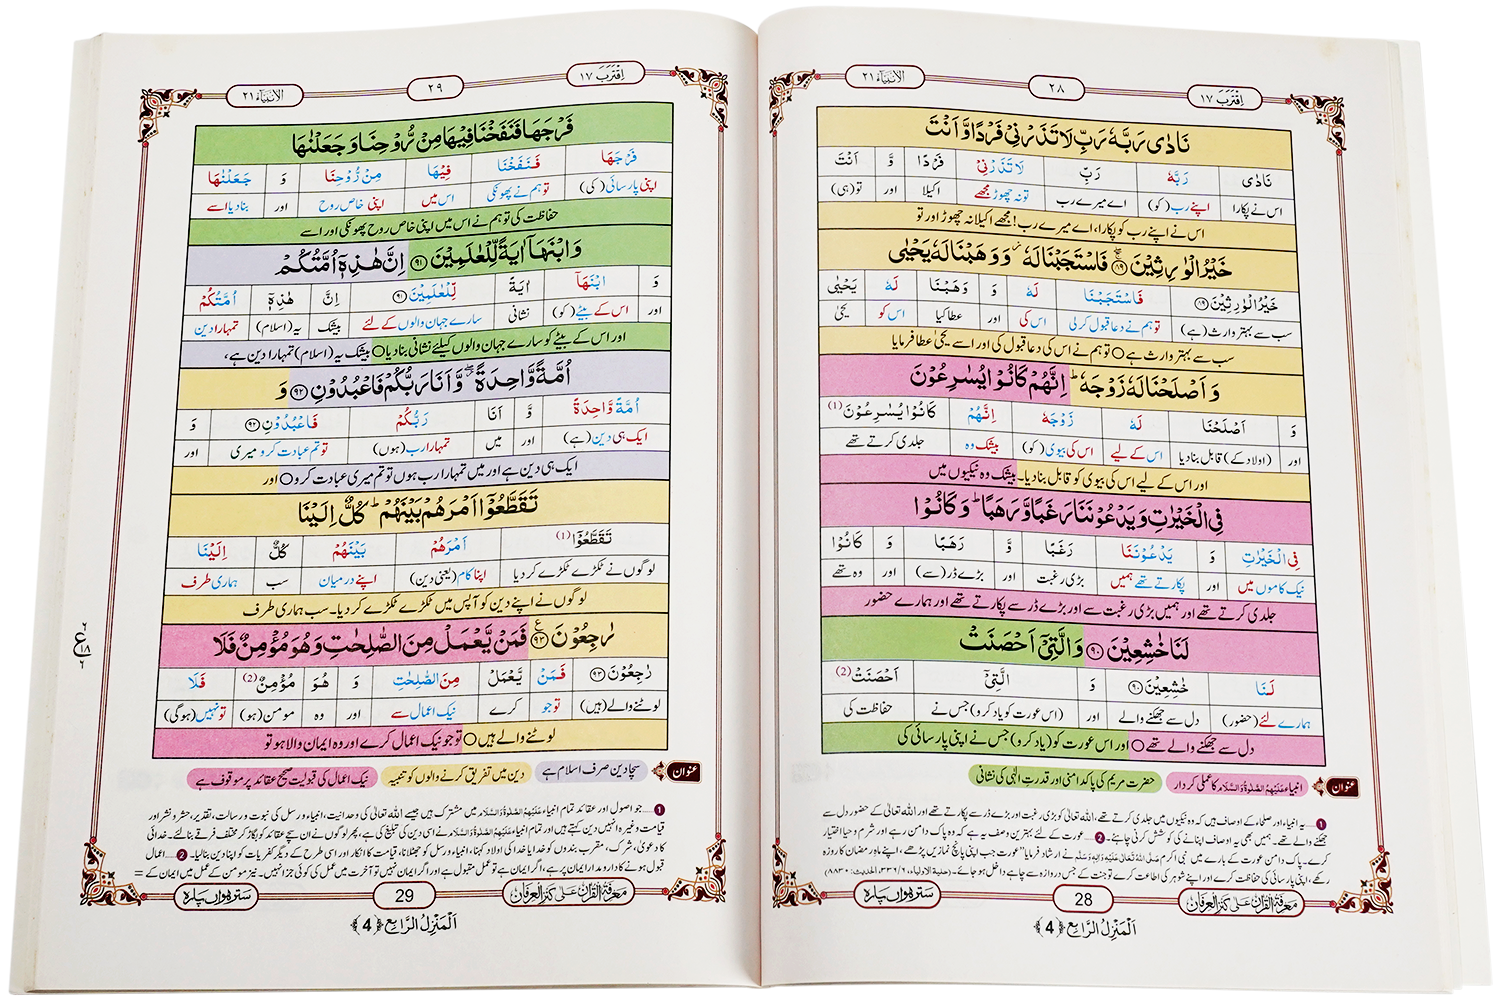 اِقْتَرَبَ ١٧
٢٨
الْاَنْبِيَآء ٢١
نَادٰى رَبَّهٗ رَبِّ لَا تَذَرْنِیْ فَرْدًا وَّ اَنْتَ
نَادٰى رَبَّهٗ رَبِّ لَا تَذَرْنِیْ فَرْدًا وَّ اَنْتَ
اس نے پکارا اپنے رب (کو) اے میرے رب تو نہ چھوڑ مجھے اکیلا اور تو (ہی)
اس نے اپنے رب کو پکارا، اے میرے رب! مجھے اکیلا نہ چھوڑ اور تو
خَیْرُ الْوٰرِثِیْنَ ﴿٨٩﴾ فَاسْتَجَبْنَا لَهٗ وَ وَهَبْنَا لَهٗ یَحْیٰى
خَیْرُ الْوٰرِثِیْنَ ﴿٨٩﴾ فَاسْتَجَبْنَا لَهٗ وَ وَهَبْنَا لَهٗ یَحْیٰى
سب سے بہتر وارث (ہے) تو ہم نے دعا قبول کر لی اس کی اور عطا کیا اس کو یحیٰ
سب سے بہتر وارث ہے ○ تو ہم نے اس کی دعا قبول کی اور اسے یحیٰ عطا فرمایا
وَ اَصْلَحْنَا لَهٗ زَوْجَهٗ ؕ اِنَّهُمْ كَانُوْا یُسٰرِعُوْنَ
وَ اَصْلَحْنَا لَهٗ زَوْجَهٗ اِنَّهُمْ كَانُوْا یُسٰرِعُوْنَ (1)
اور (اولاد کے) قابل بنا دیا اس کے لیے اس کی بیوی (کو) بیشک وہ جلدی کرتے تھے
اور اس کے لیے اس کی بیوی کو قابل بنا دیا۔ بیشک وہ نیکیوں میں
فِی الْخَیْرٰتِ وَ یَدْعُوْنَنَا رَغَبًا وَّ رَهَبًا ؕ وَ كَانُوْا
فِی الْخَیْرٰتِ وَ یَدْعُوْنَنَا رَغَبًا وَّ رَهَبًا وَ كَانُوْا
نیک کاموں میں اور پکارتے تھے ہمیں بڑی رغبت اور بڑے ڈر (سے) اور وہ تھے
جلدی کرتے تھے اور ہمیں بڑی رغبت سے اور بڑے ڈر سے پکارتے تھے اور ہمارے حضور
لَنَا خٰشِعِیْنَ ﴿٩٠﴾ وَ الَّتِیْۤ اَحْصَنَتْ
لَنَا خٰشِعِیْنَ ﴿٩٠﴾ وَ الَّتِیْۤ اَحْصَنَتْ (2)
ہمارے لئے (حضور) دل سے جھکنے والے اور (اس عورت کو یاد کرو) جس نے حفاظت کی
دل سے جھکنے والے تھے ○ اور اس عورت کو (یاد کرو) جس نے اپنی پارسائی کی
عنوان انبیاء عَلَیْهِمُ الصَّلٰوةُ وَالسَّلَام کا عملی کردار حضرت مریم کی پاکدامنی اور قدرتِ الٰہی کی نشانی
1… یہ انبیاء اور صلحا کے اوصاف ہیں کہ وہ نیکیوں میں جلدی کرتے تھے، اللہ تعالیٰ کو بڑی رغبت اور بڑے ڈر سے پکارتے تھے اور اللہ تعالیٰ کے حضور دل سے
جھکنے والے تھے۔ ہمیں بھی یہ اوصاف اپنانے کی کوشش کرنی چاہئے۔ 2… عورت کے لئے بہترین وصف یہ ہے کہ وہ پاک دامن رہے اور شرم و حیا اختیار
کرے۔ پاک دامن عورت کے بارے میں نبی اکرم صَلَّی اللہُ تَعَالٰی عَلَیْهِ وَاٰلِهٖ وَسَلَّم نے ارشاد فرمایا ”عورت جب اپنی پانچ نمازیں پڑھے، اپنے ماہِ رمضان کا روزہ
رکھے، اپنی پارسائی کی حفاظت کرے اور اپنے شوہر کی اطاعت کرے تو جنت کے جس دروازے سے چاہے داخل ہو جائے۔ (حلیۃ الاولیاء، ٦/٣٣٦، الحدیث: ٨٨٣٠)
معرفۃ القرآن علی کنز العرفان
28
سترھواں پارہ
اَلْمَنْزِلُ الرَّابِع ﴿4﴾
اِقْتَرَبَ ١٧
٢٩
الْاَنْبِيَآء ٢١
فَرْجَهَا فَنَفَخْنَا فِیْهَا مِنْ رُّوْحِنَا وَ جَعَلْنٰهَا
فَرْجَهَا فَنَفَخْنَا فِیْهَا مِنْ رُّوْحِنَا وَ جَعَلْنٰهَا
اپنی پارسائی (کی) تو ہم نے پھونکی اس میں اپنی خاص روح اور بنا دیا اسے
حفاظت کی تو ہم نے اس میں اپنی خاص روح پھونکی اور اسے
وَ ابْنَهَاۤ اٰیَةً لِّلْعٰلَمِیْنَ ﴿٩١﴾ اِنَّ هٰذِهٖۤ اُمَّتُكُمْ
وَ ابْنَهَاۤ اٰیَةً لِّلْعٰلَمِیْنَ ﴿٩١﴾ اِنَّ هٰذِهٖۤ اُمَّتُكُمْ
اور اس کے بیٹے (کو) نشانی سارے جہان والوں کے لئے بیشک یہ (اسلام) تمہارا دین
اور اس کے بیٹے کو سارے جہان والوں کیلئے نشانی بنا دیا ○ بیشک یہ (اسلام) تمہارا دین ہے،
اُمَّةً وَّاحِدَةً ۖ٘ وَّ اَنَا رَبُّكُمْ فَاعْبُدُوْنِ ﴿٩٢﴾ وَ
اُمَّةً وَّاحِدَةً وَّ اَنَا رَبُّكُمْ فَاعْبُدُوْنِ ﴿٩٢﴾ وَ
ایک ہی دین (ہے) اور میں تمہارا رب (ہوں) تو تم عبادت کرو میری اور
ایک ہی دین ہے اور میں تمہارا رب ہوں تو تم میری عبادت کرو ○ اور
تَقَطَّعُوْۤا اَمْرَهُمْ بَیْنَهُمْ ؕ كُلٌّ اِلَیْنَا
تَقَطَّعُوْۤا (1) اَمْرَهُمْ بَیْنَهُمْ كُلٌّ اِلَیْنَا
لوگوں نے ٹکڑے ٹکڑے کر دیا اپنا کام (یعنی دین) اپنے درمیان سب ہماری طرف
لوگوں نے اپنے دین کو آپس میں ٹکڑے ٹکڑے کر دیا۔ سب ہماری طرف
رٰجِعُوْنَ ﴿٩٣﴾ فَمَنْ یَّعْمَلْ مِنَ الصّٰلِحٰتِ وَ هُوَ مُؤْمِنٌ فَلَا
رٰجِعُوْنَ ﴿٩٣﴾ فَمَنْ یَّعْمَلْ مِنَ الصّٰلِحٰتِ وَ هُوَ مُؤْمِنٌ (2) فَلَا
لوٹنے والے (ہیں) تو جو کرے نیک اعمال سے اور وہ مومن (ہو) تو نہیں (ہوگی)
لوٹنے والے ہیں ○ تو جو نیک اعمال کرے اور وہ ایمان والا ہو تو
٢
ع
١٨
٦
عنوان سچا دین صرف اسلام ہے دین میں تفریق کرنے والوں کو تنبیہ نیک اعمال کی قبولیت صحیح عقائد پر موقوف ہے
1… جو اصول اور عقائد تمام انبیاء عَلَیْهِمُ الصَّلٰوةُ وَالسَّلَام میں مشترک ہیں جیسے اللہ تعالیٰ کی وحدانیت، انبیاء و رسل کی نبوت و رسالت، تقدیر، حشر و نشر اور
قیامت وغیرہ انہیں دین کہتے ہیں اور تمام انبیاء عَلَیْهِمُ الصَّلٰوةُ وَالسَّلَام نے اسی دین کی تبلیغ کی ہے، پھر لوگوں نے ان سچے عقائد کو بگاڑ کر مختلف فرقے بنا لئے۔ خدائی
کا دعویٰ، شرک، مقرب بندوں کو خدا یا خدا کی اولاد کہنا، انبیاء و رسل کو جھٹلانا، قیامت کا انکار اور اسی طرح کے دیگر کفریات کو اپنا دین بنا لیا۔ 2… اعمال
قبول ہونے کا دارومدار ایمان پر ہے، اگر ایمان ہے تو عمل مقبول ہے اور اگر ایمان نہیں تو آخرت میں عمل کی کوئی جزا نہیں۔ نیز مومن کے عمل میں ایمان کے =
معرفۃ القرآن علی کنز العرفان
29
سترھواں پارہ
اَلْمَنْزِلُ الرَّابِع ﴿4﴾